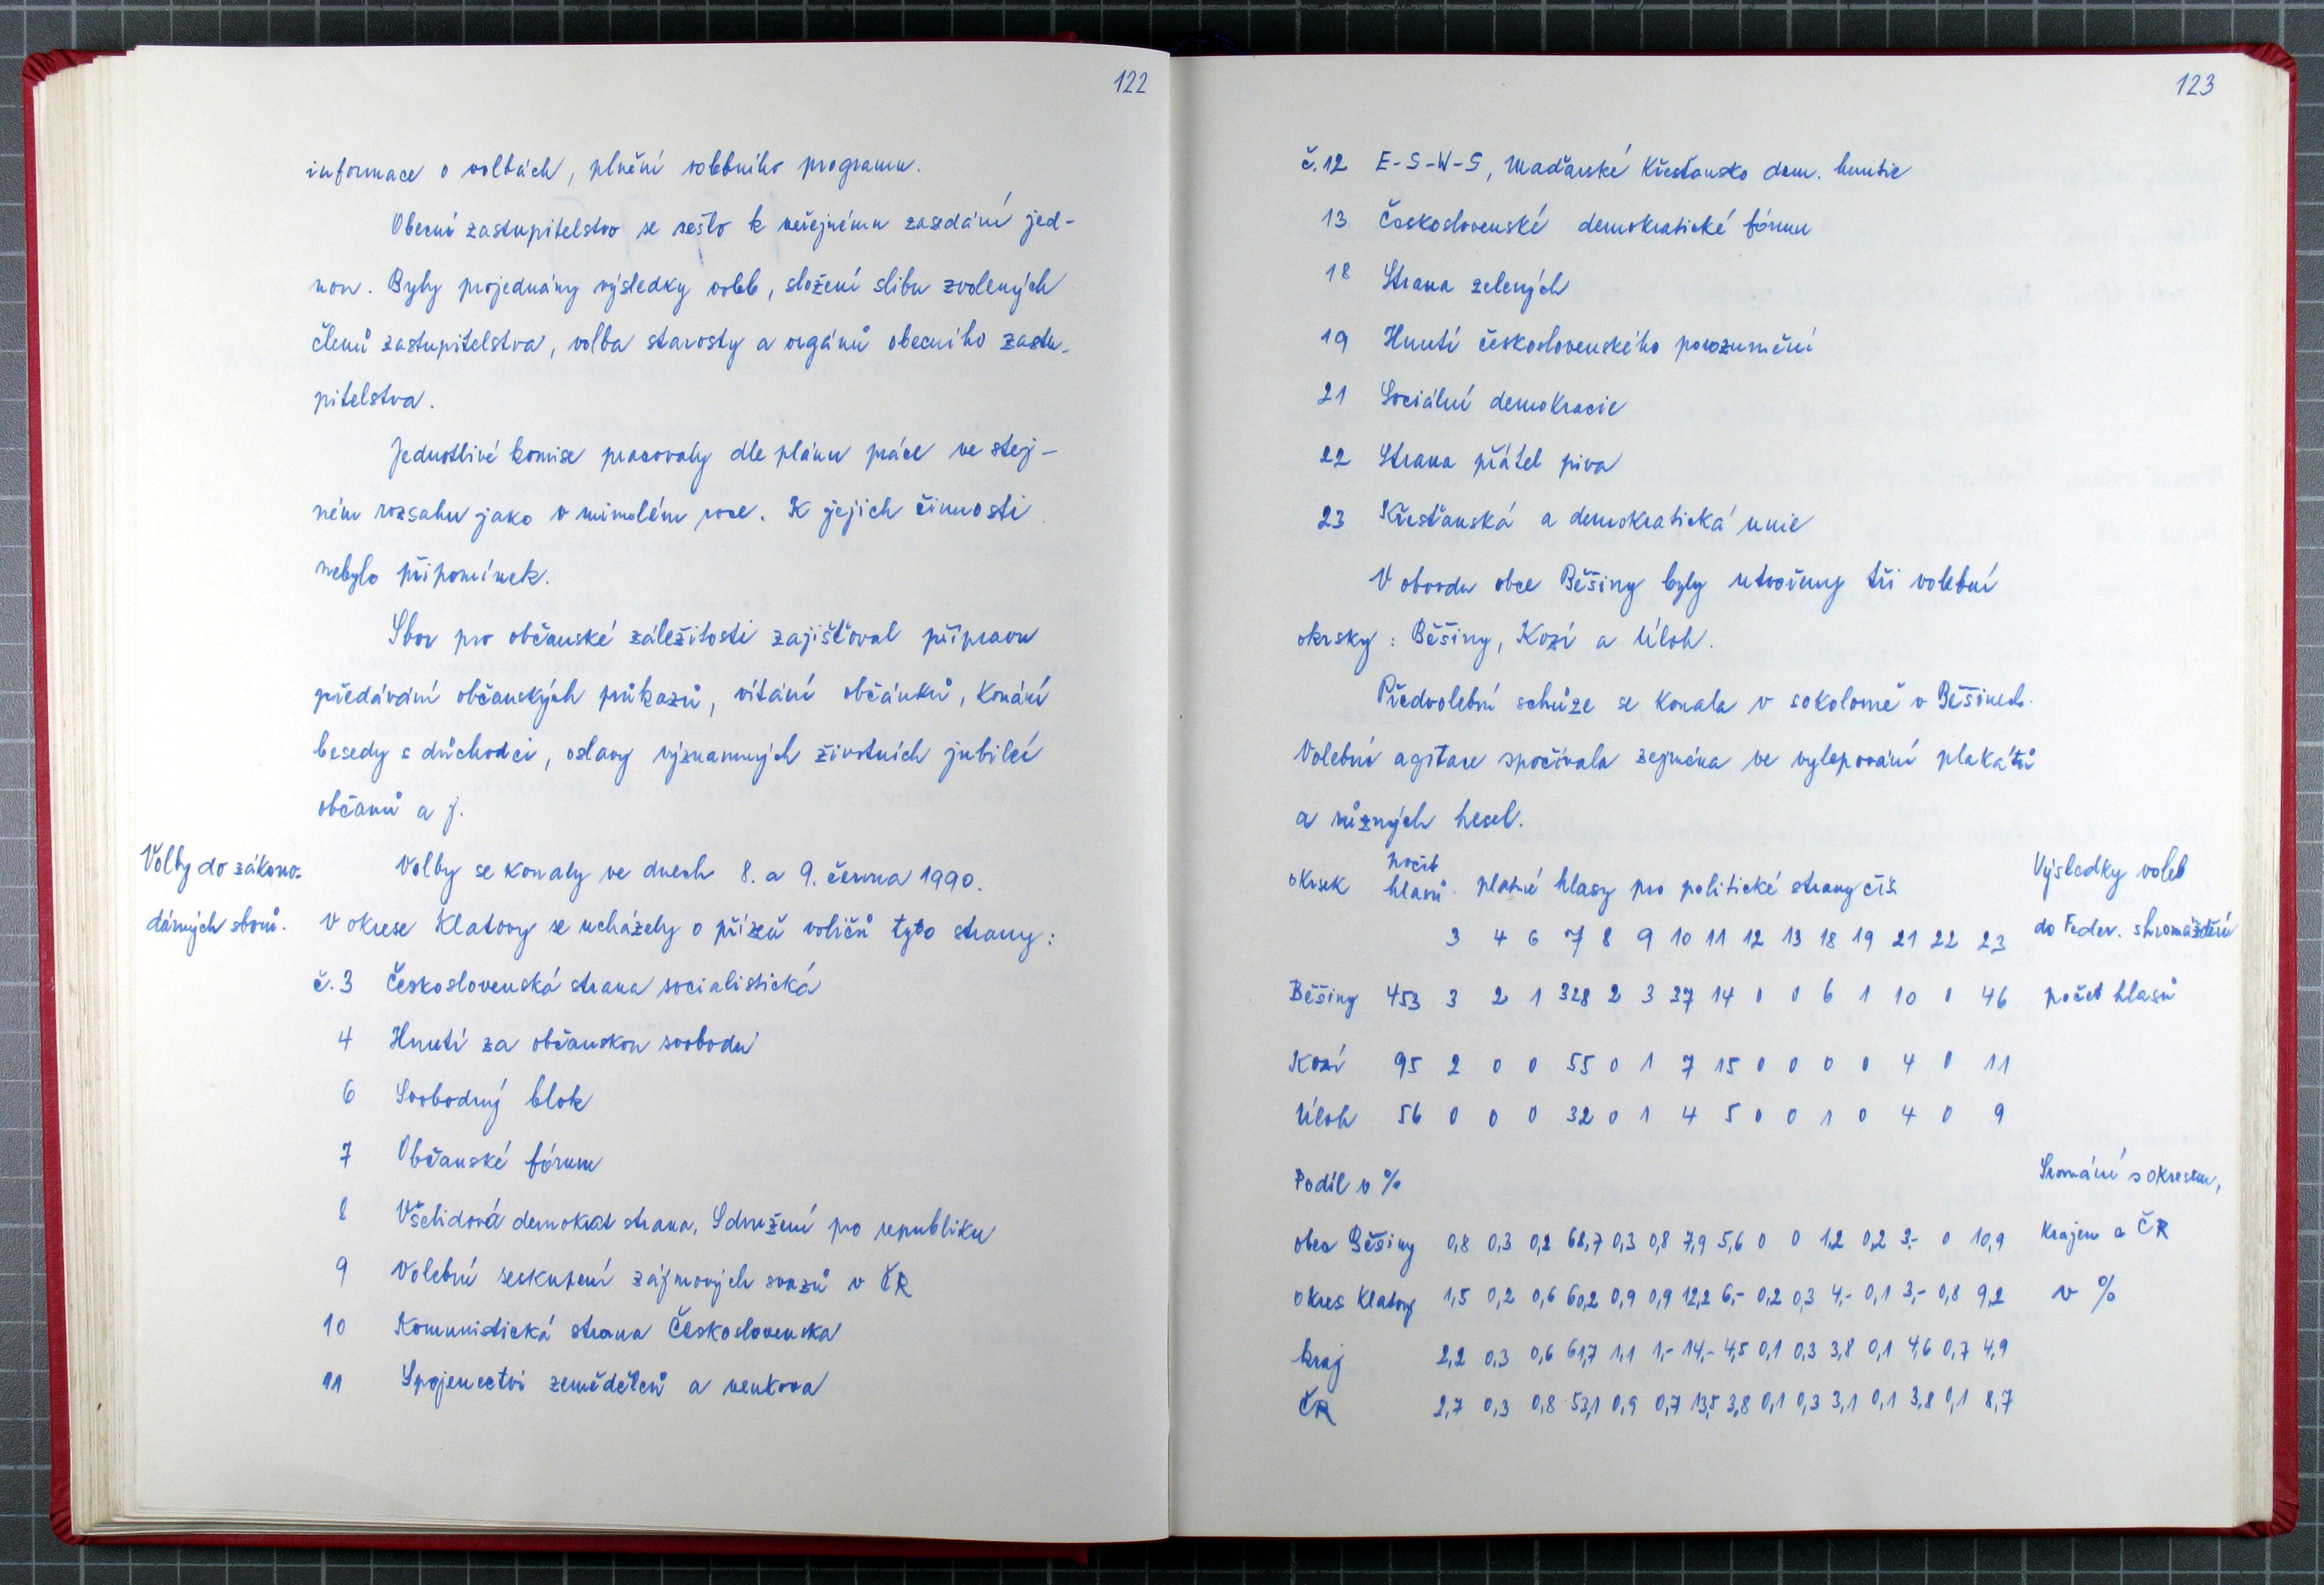 122
informace o volbách, plnění volebního programu.
Obecní zastupitelstvo se sešlo k veřejnému zasedání jed-
nou. Byly projednány výsledky voleb, složení slibu zvolených
členů zastupitelstva, volba starosty a orgánů obecního zastu-
pitelstva.
Jednotlivé komise pracovaly dle plánu práce ve stej-
ném rozsahu jako v minulém roce. K jejich činnosti
nebylo připomínek.
Sbor pro občanské záležitosti zajišťoval přípravu
předávání občanských průkazů, vítání občánků, konání
besedy s důchodci, oslavy významných životních jubileí
občanů a j.
Volby do zákono-
dárných sborů.
Volby se konaly ve dnech 8. a 9. června 1990.
V okrese Klatovy se ucházely o přízeň voličů tyto strany:
č. 3 Československá strana socialistická
4 Hnutí za občanskou svobodu
6 Svobodný blok
7 Občanské fórum
8 Všelidová demokrat strana, Sdružení pro republiku
9 Volební seskupení zájmových svazů v ČR
10 Komunistická strana Československa
11 Spojenectví zemědělců a venkova
123
č. 12 E-S-W-S, Maďarské Křesťansko dem. hnutie
13 Československé demokratické fórum
18 Strana zelených
19 Hnutí československého porozumění
21 Sociální demokracie
22 Strana přátel piva
23 Křesťanská a demokratická unie
V obvodu obce Běšiny byly utvořeny tři volební
okrsky: Běšiny, Kozí a Úloh.
Předvolební schůze se konala v sokolovně v Běšinech.
Volební agitace spočívala zejména ve vylepování plakátů
a různých hesel.
okrsek počet hlasů platné hlasy pro politické strany čís.
3 4 6 7 8 9 10 11 12 13 18 19 21 22 23
Běšiny 453 3 2 1 328 2 3 37 14 0 0 6 1 10 0 46
Kozí 95 2 0 0 55 0 1 7 15 0 0 0 0 4 0 11
Úloh 56 0 0 0 32 0 1 4 5 0 0 1 0 4 0 9
Podíl v %
obec Běšiny 0,8 0,3 0,2 68,7 0,3 0,8 7,9 5,6 0 0 1,2 0,2 3,- 0 10,9
okres Klatovy 1,5 0,2 0,6 60,2 0,9 0,9 12,2 6,- 0,2 0,3 4,- 0,1 3,- 0,8 9,2
kraj 2,2 0,3 0,6 61,7 1,1 1,- 14,- 4,5 0,1 0,3 3,8 0,1 4,6 0,7 4,9
ČR 2,7 0,3 0,8 53,1 0,9 0,7 13,5 3,8 0,1 0,3 3,1 0,1 3,8 0,1 8,7
Výsledky voleb
do Feder. shromáždění
počet hlasů
Srovnání s okresem,
krajem a ČR
v %